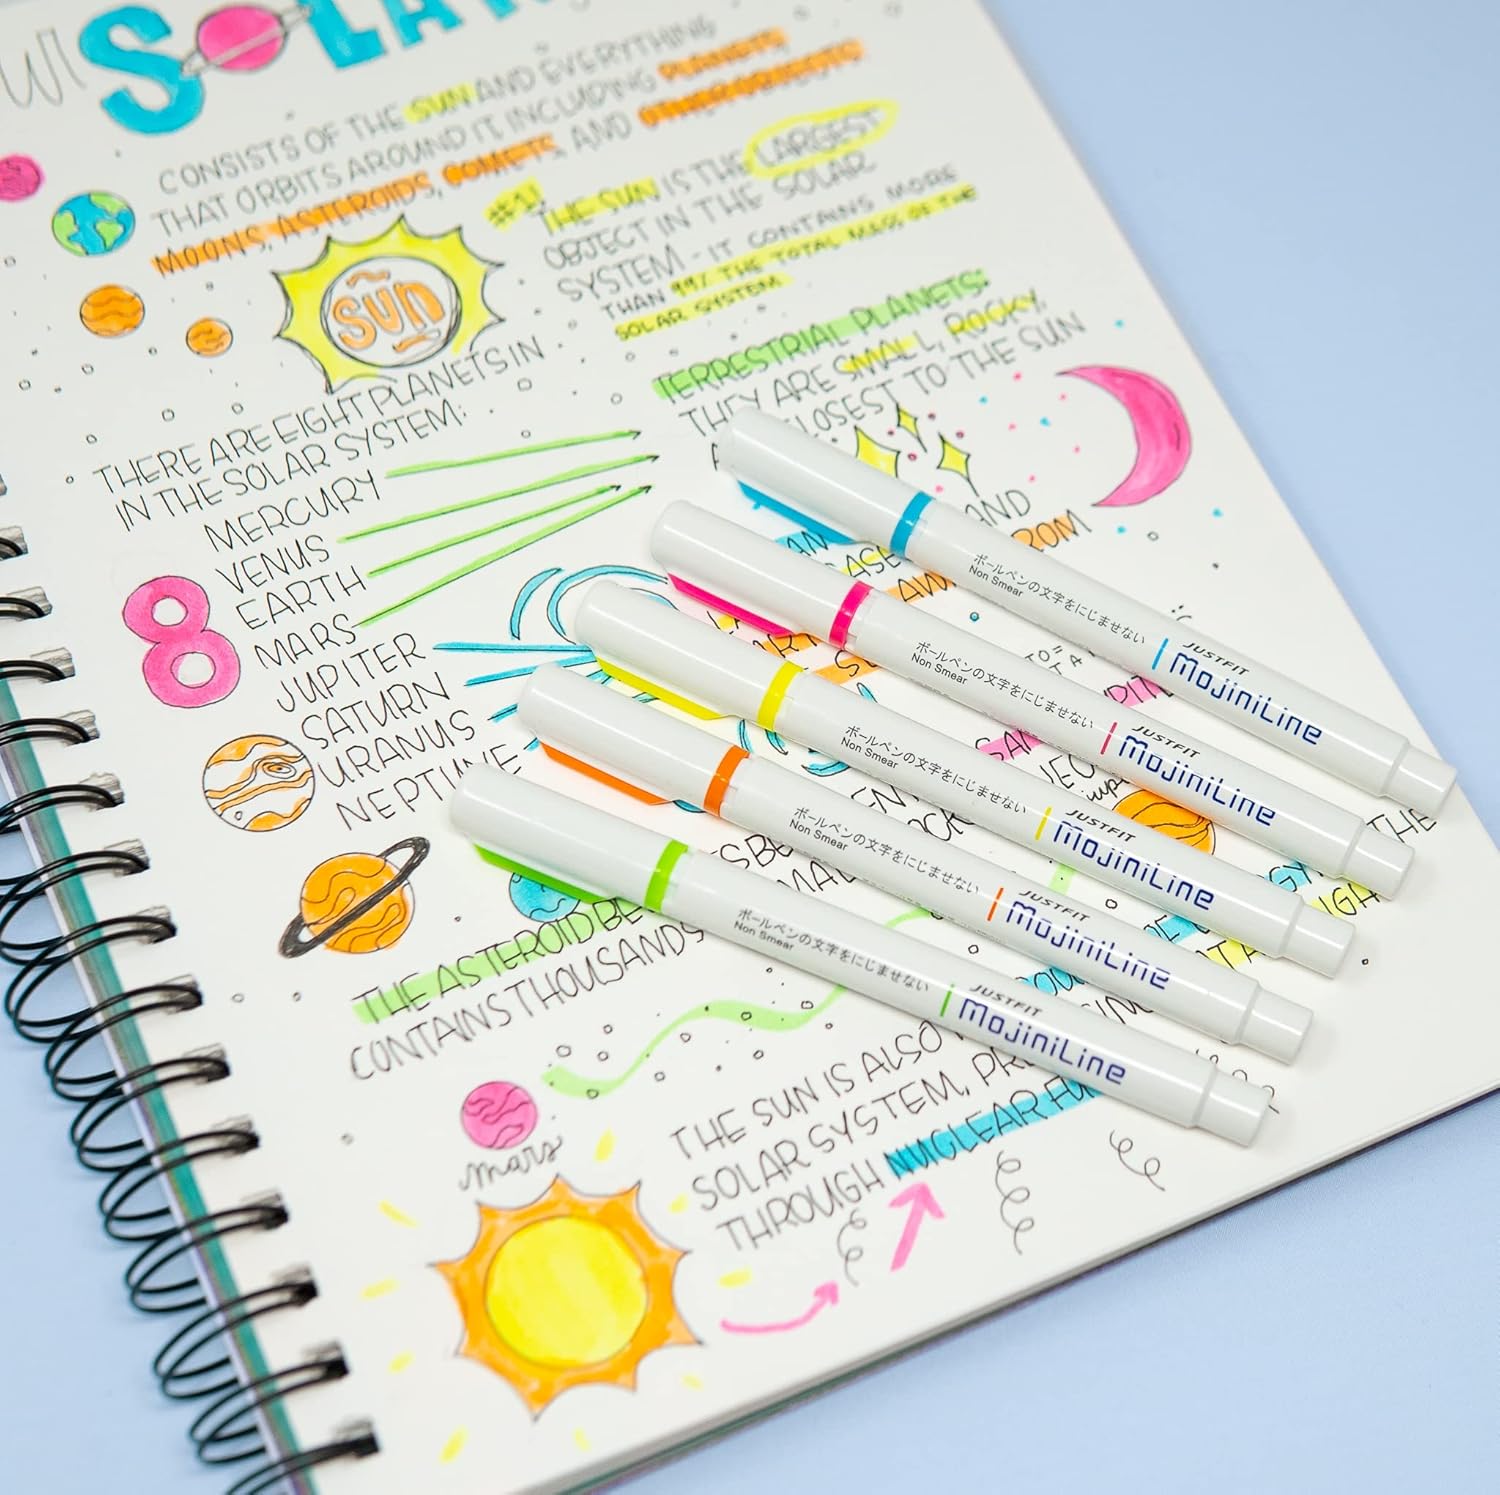 SOLA
CONSISTS OF THE SUN AND EVERYTHING
THAT ORBITS AROUND IT INCLUDING PLANETS,
MOONS, ASTEROIDS, COMETS, AND OTHER OBJECTS
SUN
#1!
THE SUN IS THE LARGEST
OBJECT IN THE SOLAR
SYSTEM - IT CONTAINS MORE
THAN 99% THE TOTAL MASS OF THE
SOLAR SYSTEM
TERRESTRIAL PLANETS:
THEY ARE SMALL, ROCKY,
CLOSEST TO THE SUN
THERE ARE EIGHT PLANETS IN
IN THE SOLAR SYSTEM:
8
MERCURY
VENUS
EARTH
MARS
JUPITER
SATURN
URANUS
NEPTUNE
AND
ROM
ボールペンの文字をにじませない
Non Smear
JUSTFIT
MojiniLine
ボールペンの文字をにじませない
Non Smear
JUSTFIT
MojiniLine
ボールペンの文字をにじませない
Non Smear
JUSTFIT
MojiniLine
ボールペンの文字をにじませない
Non Smear
JUSTFIT
MojiniLine
ボールペンの文字をにじませない
Non Smear
JUSTFIT
MojiniLine
THE
THE ASTEROID BE
CONTAINS THOUSANDS
mars
THE SUN IS ALSO
SOLAR SYSTEM, PR
THROUGH NUCLEAR FU